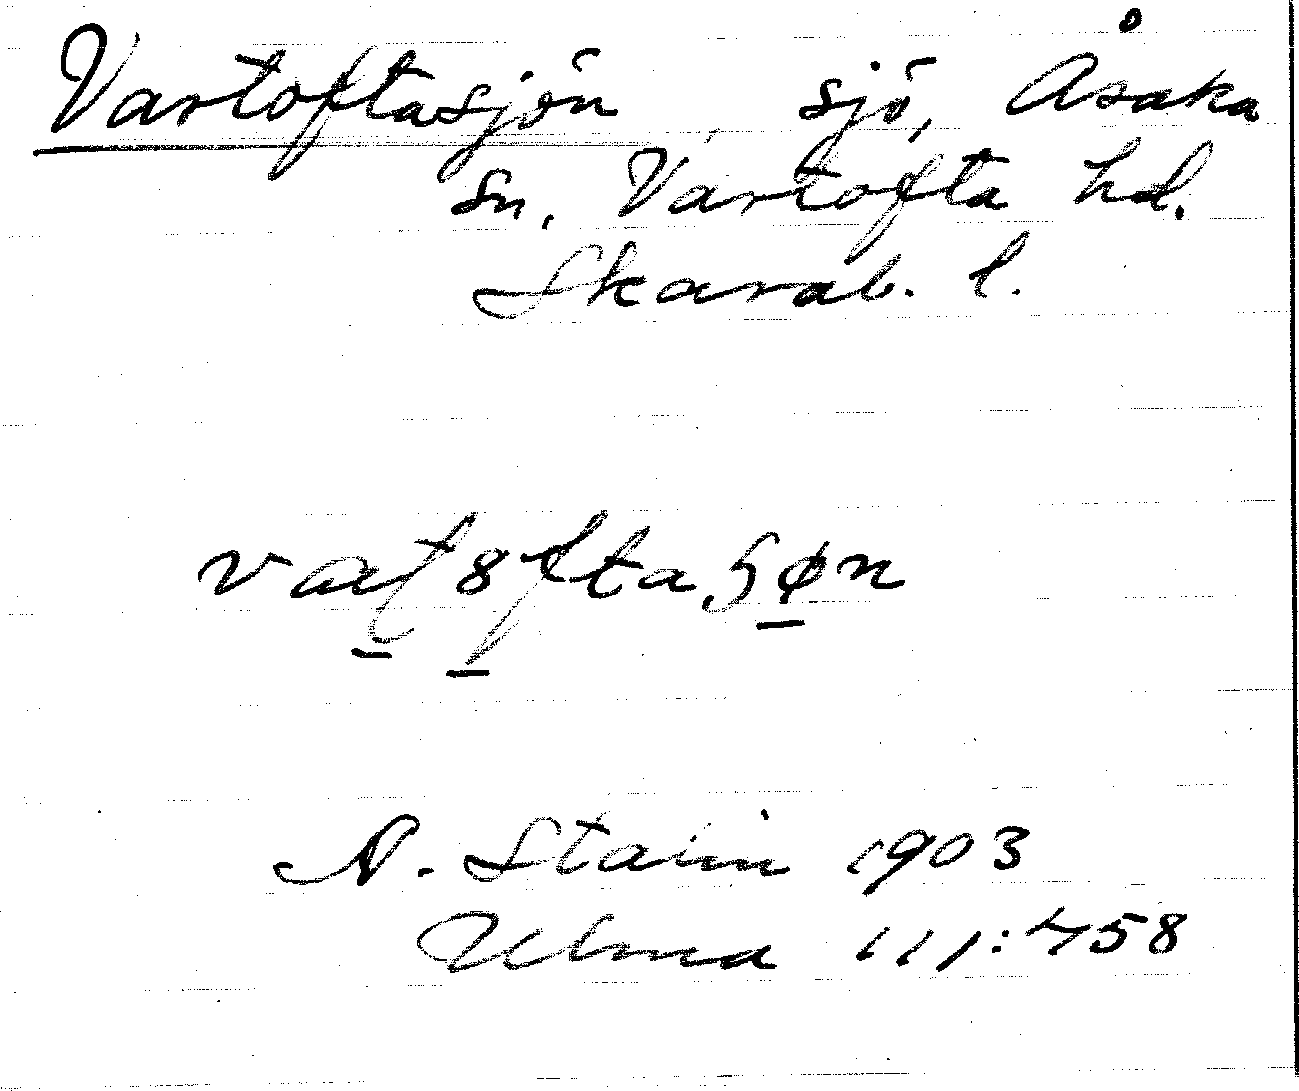 Vartoftasjön, sjö, Åsaka
sn, Vartofta hd.
Skarab. l.
A. Stalin 1903
Ulma 111:458